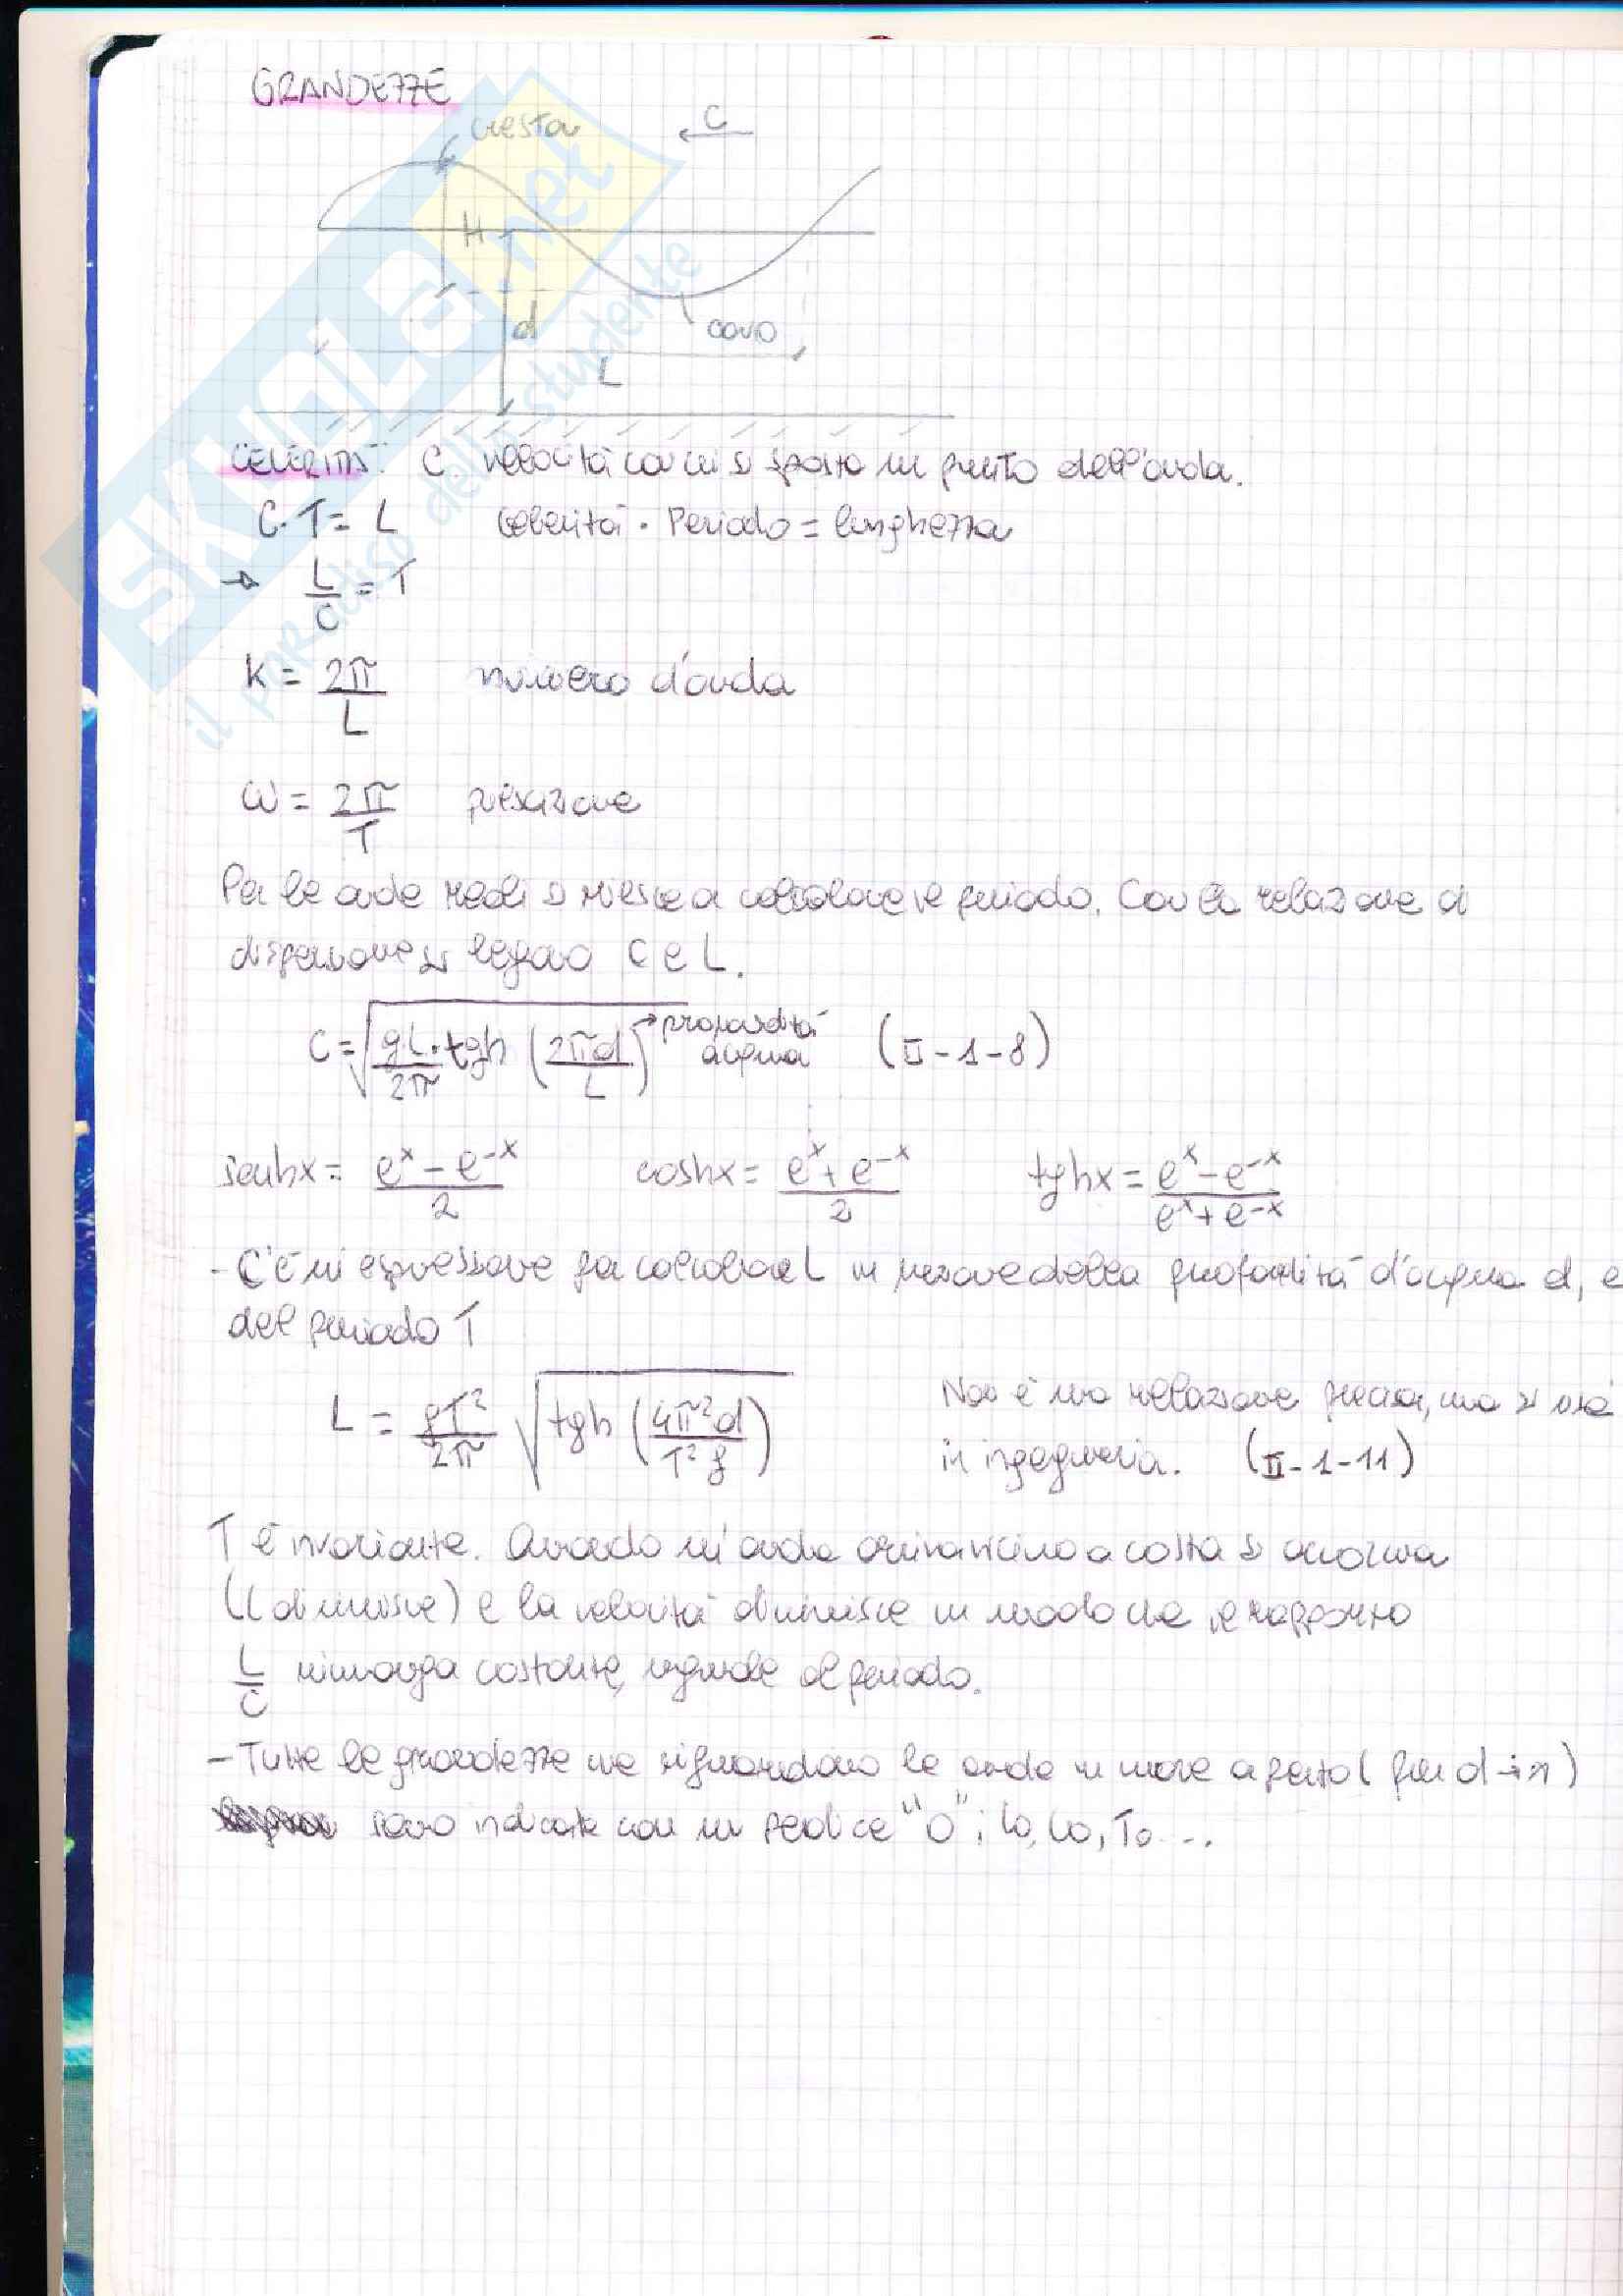 GRANDEZZE
cresta
C
H
d
cavo
L
CELERITÀ: C velocità con cui si sposta un punto dell'onda.
C·T = L celerità · Periodo = lunghezza
→ L/C = T
K = 2π/L numero d'onda
ω = 2π/T pulsazione
Per le onde reali si riesce a calcolare il periodo. Con la relazione di
dispersione si legano C e L.
C = √(gL/2π · tgh (2πd/L)) → profondità acqua (II-1-8)
senhx = (e^x - e^-x)/2 coshx = (e^x + e^-x)/2 tghx = (e^x - e^-x)/(e^x + e^-x)
- C'è un'espressione per calcolare L in funzione della profondità d'acqua d, e
del periodo T
L = gT²/2π √(tgh (4π²d/T²g)) Non è una relazione precisa, ma si usa
in ingegneria. (II-1-11)
T è invariante. Quando un'onda arriva vicino a costa si accorcia
(L diminuisce) e la velocità diminuisce in modo che il rapporto
L/C rimanga costante, uguale al periodo.
- Tutte le grandezze che riguardano le onde in mare aperto (per d→∞)
sono indicate con un pedice "0"; L0, C0, T0 ...
SKUOLA.net
il paradiso dello studente